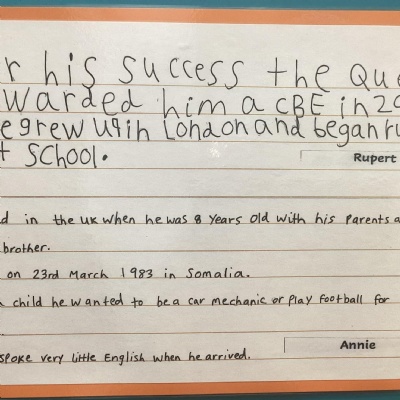 r his success the Que
warded him a CBE in 20
e grew up in London and began ru
t School.
Rupert
d in the UK when he was 8 years old with his parents a
brother.
on 23rd March 1983 in Somalia.
child he wanted to be a car mechanic or play football for
Annie
spoke very little English when he arrived.